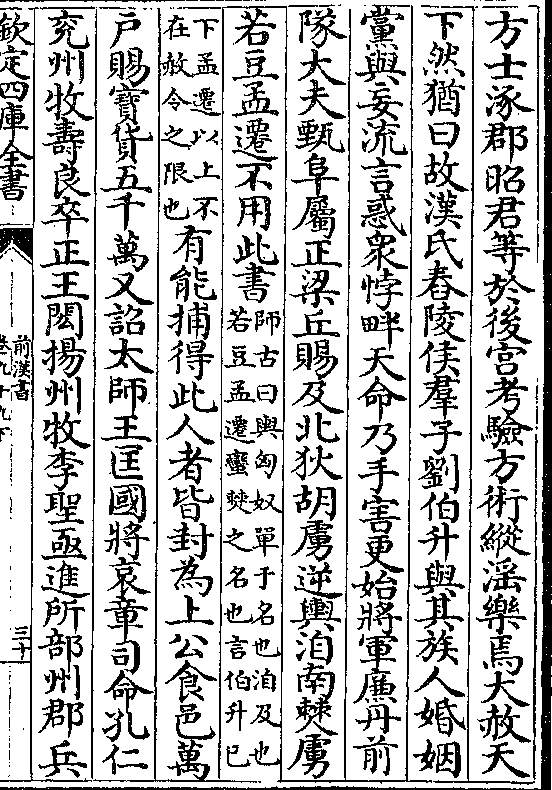 方士涿郡昭君等於後宮考驗方術縱滛樂焉大赦天
下然猶曰故漢氏舂陵侯羣子劉伯升與其族人婚姻
黨與妄流言惑衆悖畔天命乃手害更始將軍廉丹前
隊大夫甄阜屬正梁丘賜及北狄胡虜逆輿洎南僰虜
若豆孟遷不用此書師古曰輿匈奴單于名也洎及也
若豆孟遷蠻僰之名也言伯升已
下孟遷以上不
在赦令之限也有能捕得此人者皆封為上公食邑萬
户賜寶貨五千萬又詔太師王匡國將哀章司命孔仁
兖州牧壽良卒正王閎揚州牧李聖亟進所部州郡兵
欽定四庫全書
前漢書
卷九十九下
三十